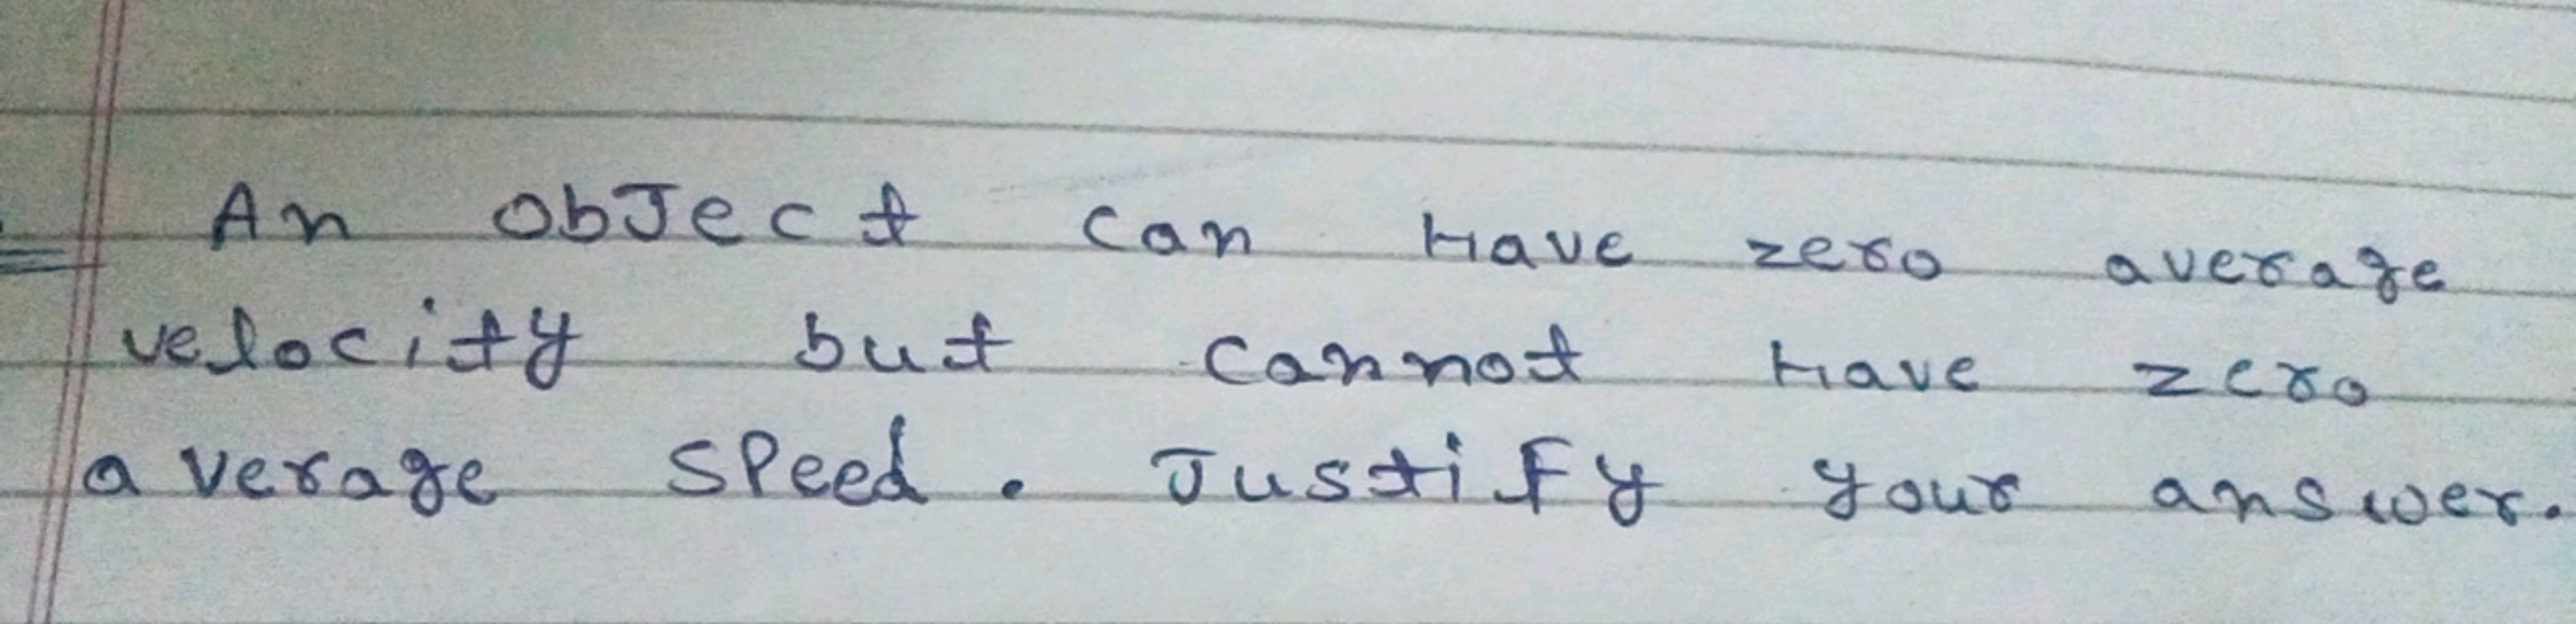 An object can Have zero average
velocity but cannot Have zero
average speed. Justify your answer.